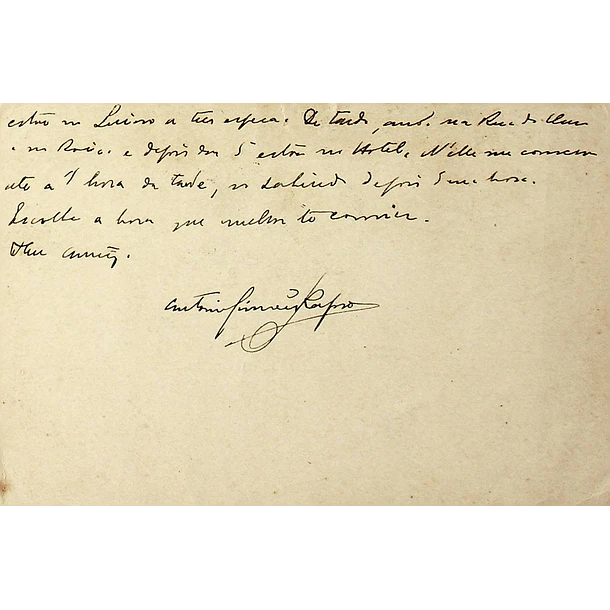 estou no a tua espera. De tarde, ando na Rua do
e no e depois das 5 estou no Hotel. N'elle me conservo
até a 1 hora da tarde, só sahindo depois d'essa hora.
Escolhe a hora que melhor te convier.
Teu amigo,
Antonio Raposo